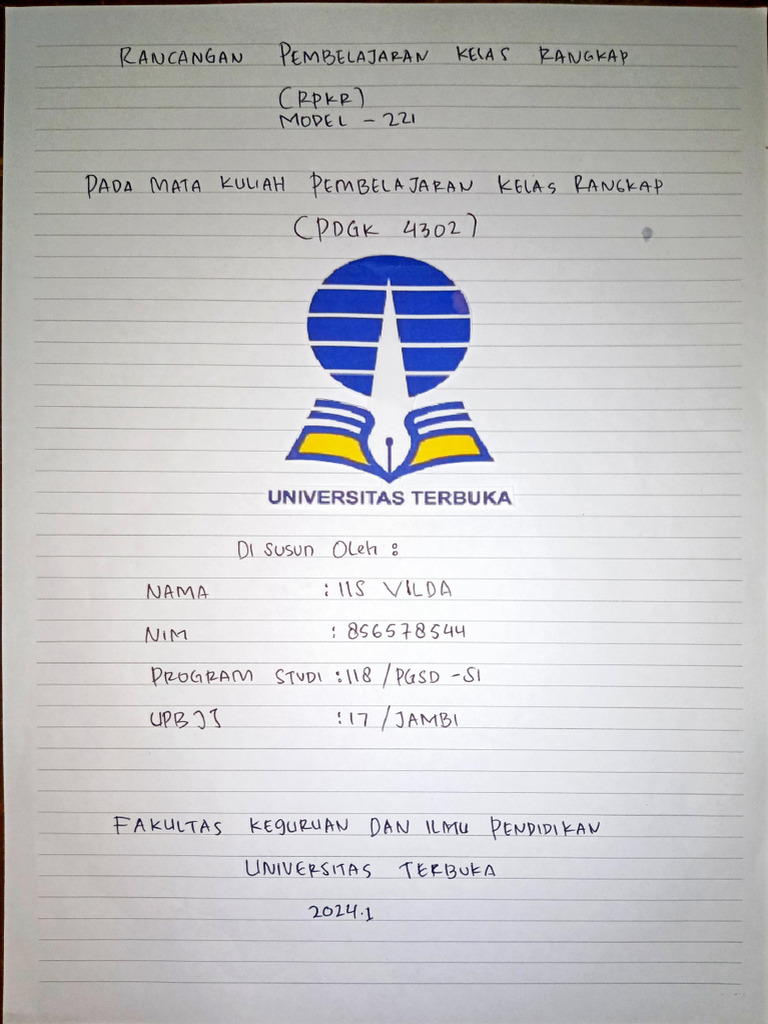 RANCANGAN PEMBELAJARAN KELAS RANGKAP
(RPKR)
MODEL - 221
PADA MATA KULIAH PEMBELAJARAN KELAS RANGKAP
(PDGK 4302)
UNIVERSITAS TERBUKA
DI SUSUN OLEH :
NAMA : IIS VILDA
NIM : 856578544
PROGRAM STUDI : 118 / PGSD - S1
UPBJJ : 17 / JAMBI
FAKULTAS KEGURUAN DAN ILMU PENDIDIKAN
UNIVERSITAS TERBUKA
2024.1